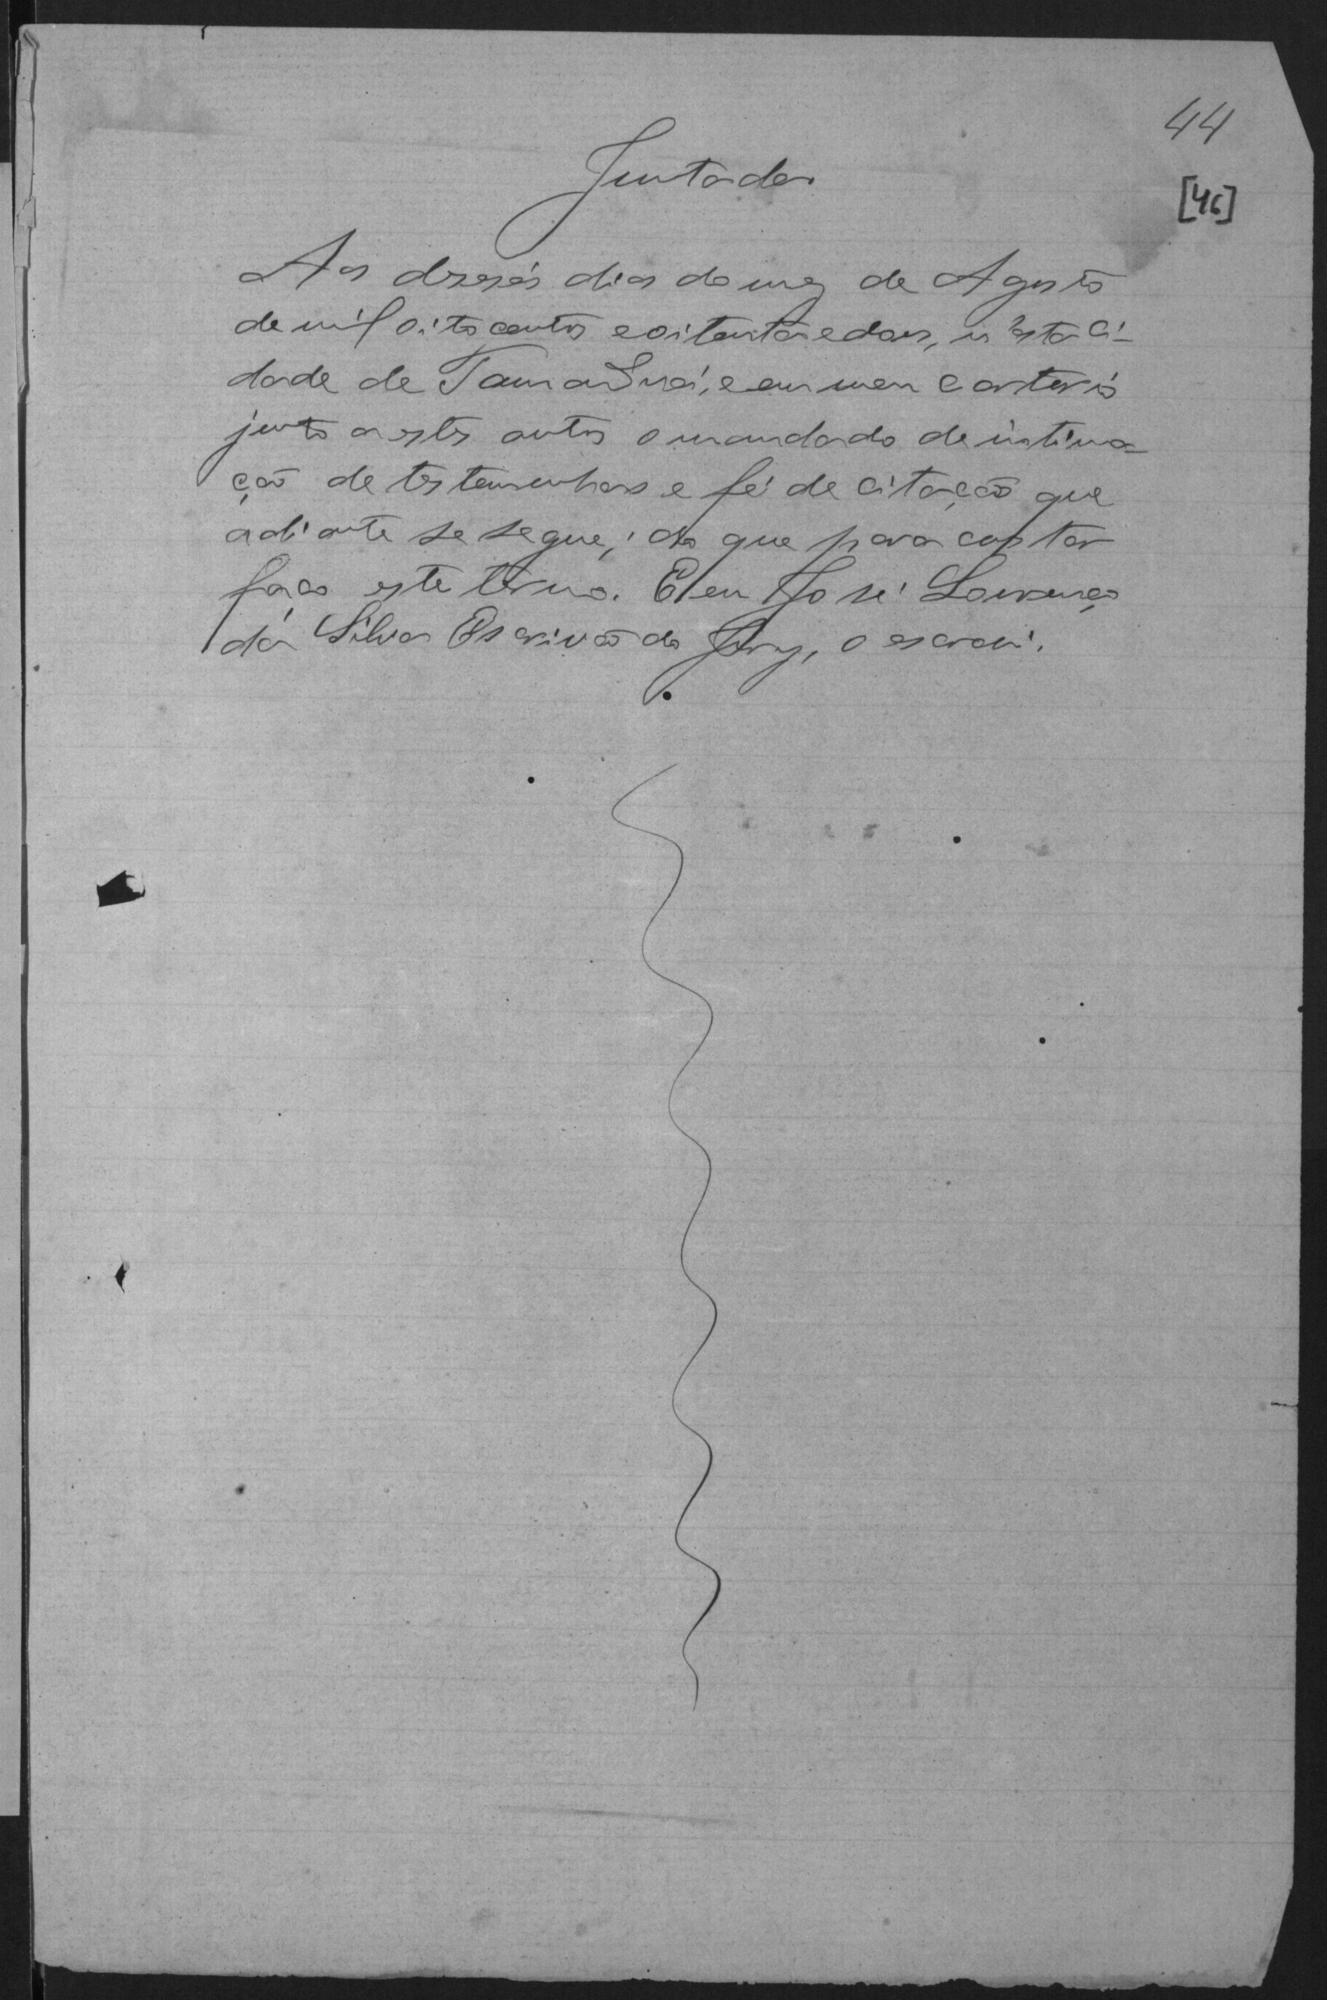 44
[46]
Juntada
Aos dezeseis dias do mez de Agosto
de mil oitocentos e oitenta e dous, n'esta ci-
dade de Tamanduá, e em meu cartorio
junto a estes autos o mandado de intima-
ção de testemunhas e fé de citação que
adiante se segue; do que para constar
faço este termo. E eu José Lourenço
da Silva Escrivão do Jury, o escrevi.